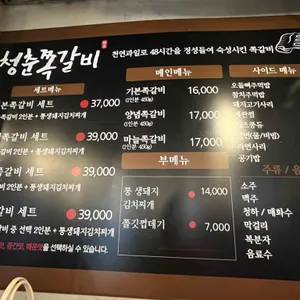 청춘쪽갈비
천연과일로 48시간을 정성들여 숙성시킨 쪽갈비
세트메뉴
쪽갈비 세트 37,000
갈비 2인분 + 통생돼지김치찌개
쪽갈비 세트 39,000
갈비 2인분 + 통생돼지김치찌개
갈비 세트 39,000
2인분 + 통생돼지김치찌개
갈비 세트 39,000
중 선택 2인분 + 통생돼지김치찌개
맛, 중간맛, 매운맛을 선택하실 수 있습니다.
메인메뉴
기본쪽갈비 16,000
(1인분 450g)
양념쪽갈비 17,000
(1인분 450g)
마늘쪽갈비 17,000
(1인분 450g)
부메뉴
통 생돼지 김치찌개 14,000
쫄깃껍데기 7,000
사이드 메뉴
오돌뼈주먹밥
참치주먹밥
돼지고기사리
계란찜
공기밥
주류 / 음
소주
맥주
청하 / 매화수
막걸리
복분자
음료수